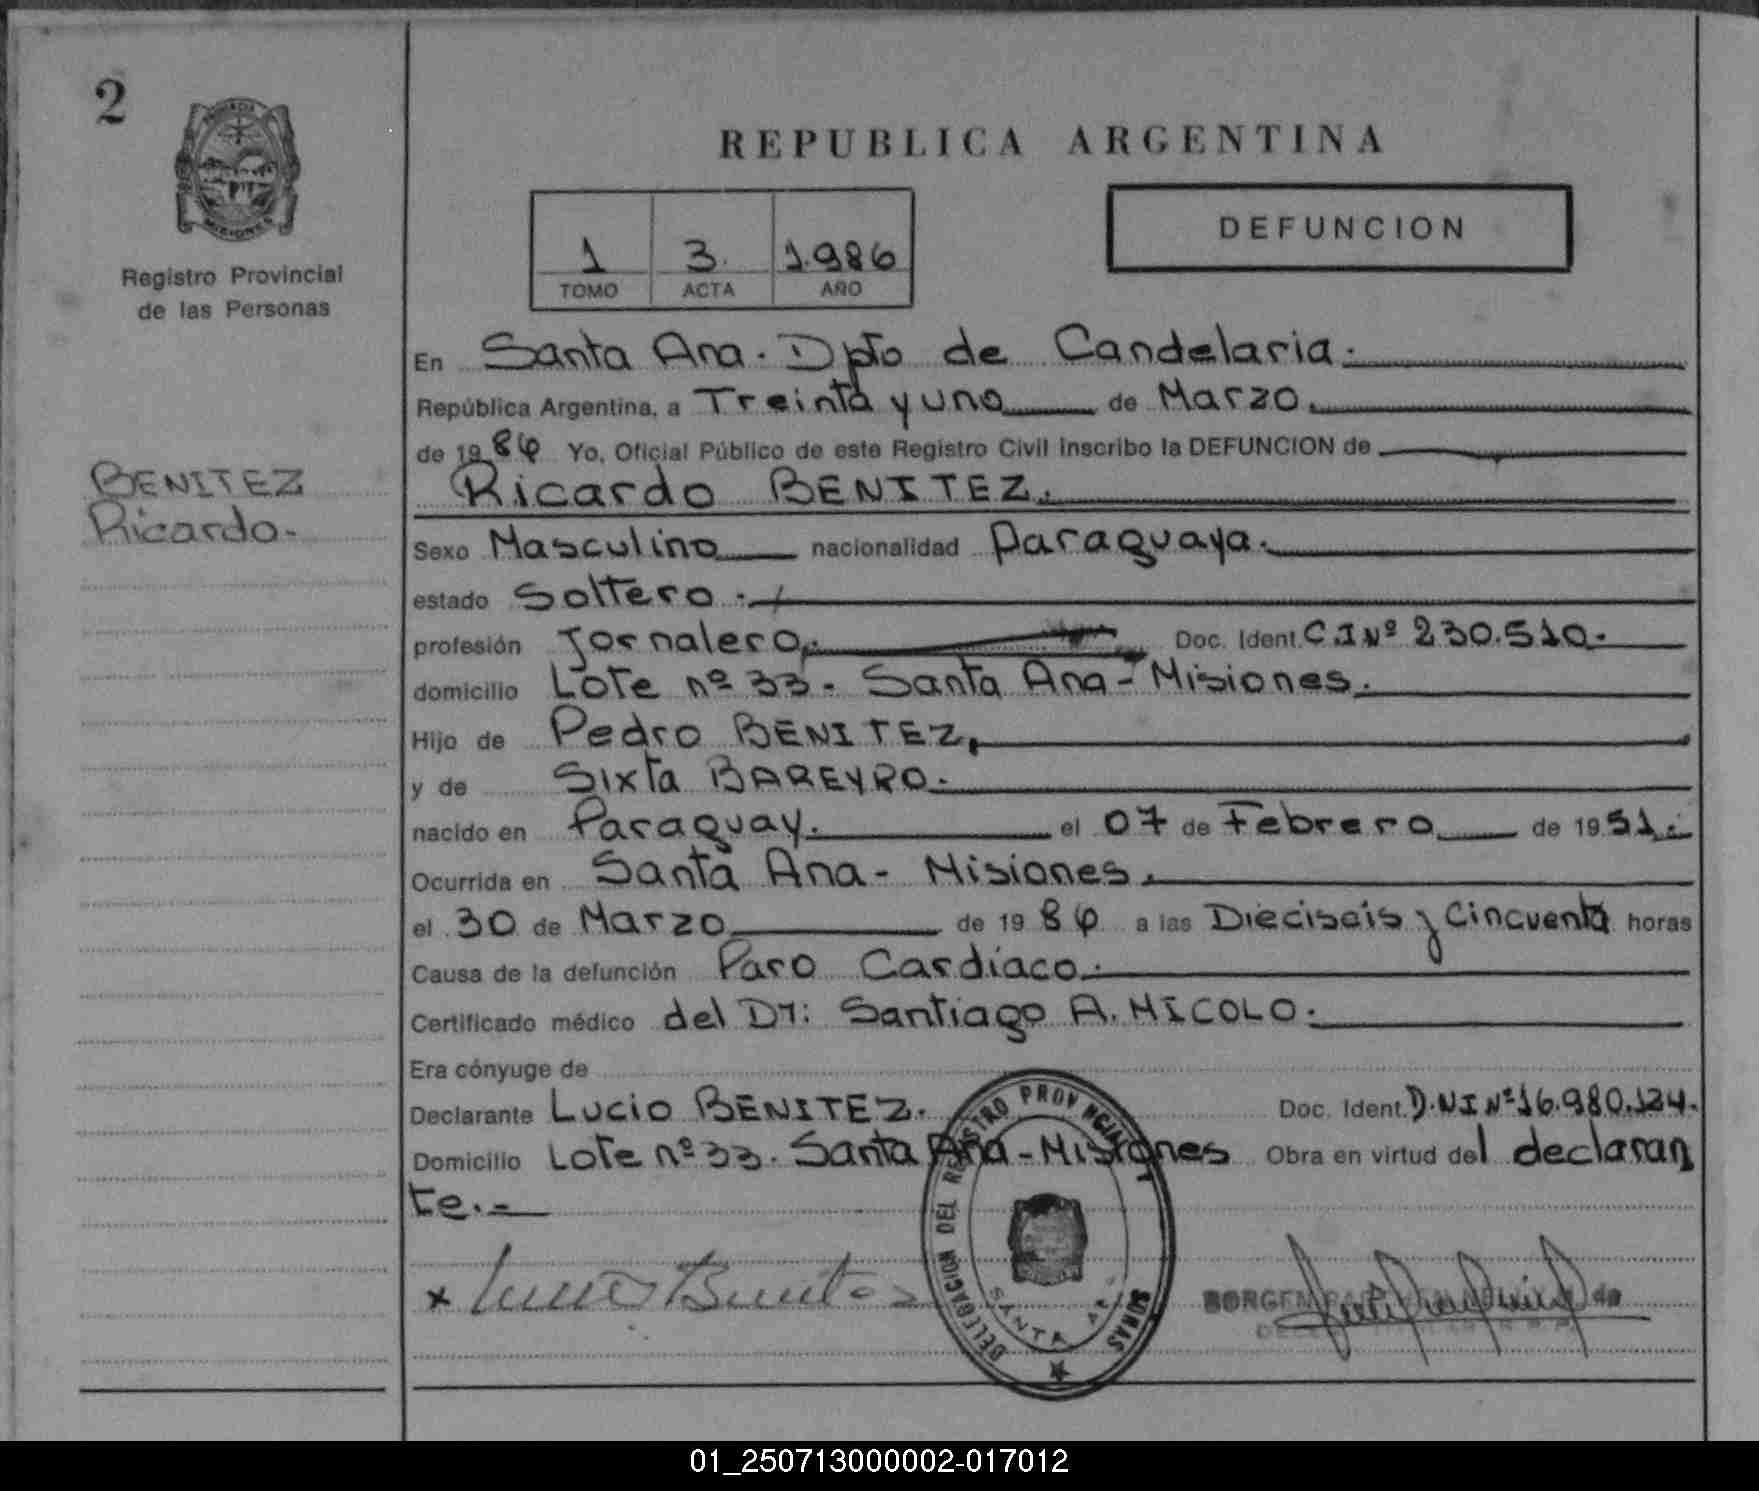 2
Registro Provincial
de las Personas
BENITEZ
Ricardo.-
REPUBLICA ARGENTINA
1 3. 1.986
TOMO ACTA AÑO
DEFUNCION
En Santa Ana. Dpto de Candelaria.
República Argentina, a Treinta y uno de Marzo.
de 1986 Yo, Oficial Público de este Registro Civil inscribo la DEFUNCION de
Ricardo BENITEZ.
Sexo Masculino nacionalidad Paraguaya.
estado Soltero.
profesión Jornalero. Doc. Ident. C.I Nº 230.510.
domicilio Lote nº 33. Santa Ana-Misiones.
Hijo de Pedro BENITEZ,
y de Sixta BAREYRO.
nacido en Paraguay. el 07 de Febrero de 1951.
Ocurrida en Santa Ana- Misiones.
el 30 de Marzo de 1986 a las Dieciseis y Cincuenta horas
Causa de la defunción Paro Cardíaco.
Certificado médico del Dr: Santiago A. MICOLO.
Era cónyuge de
Declarante Lucio BENITEZ. Doc. Ident. D.NI Nº 16.980.124.
Domicilio Lote nº 33. Santa Ana-Misiones Obra en virtud del declaran
te.-
DELEGACION DEL REGISTRO PROVINCIAL
SANTA
x
01_250713000002-017012